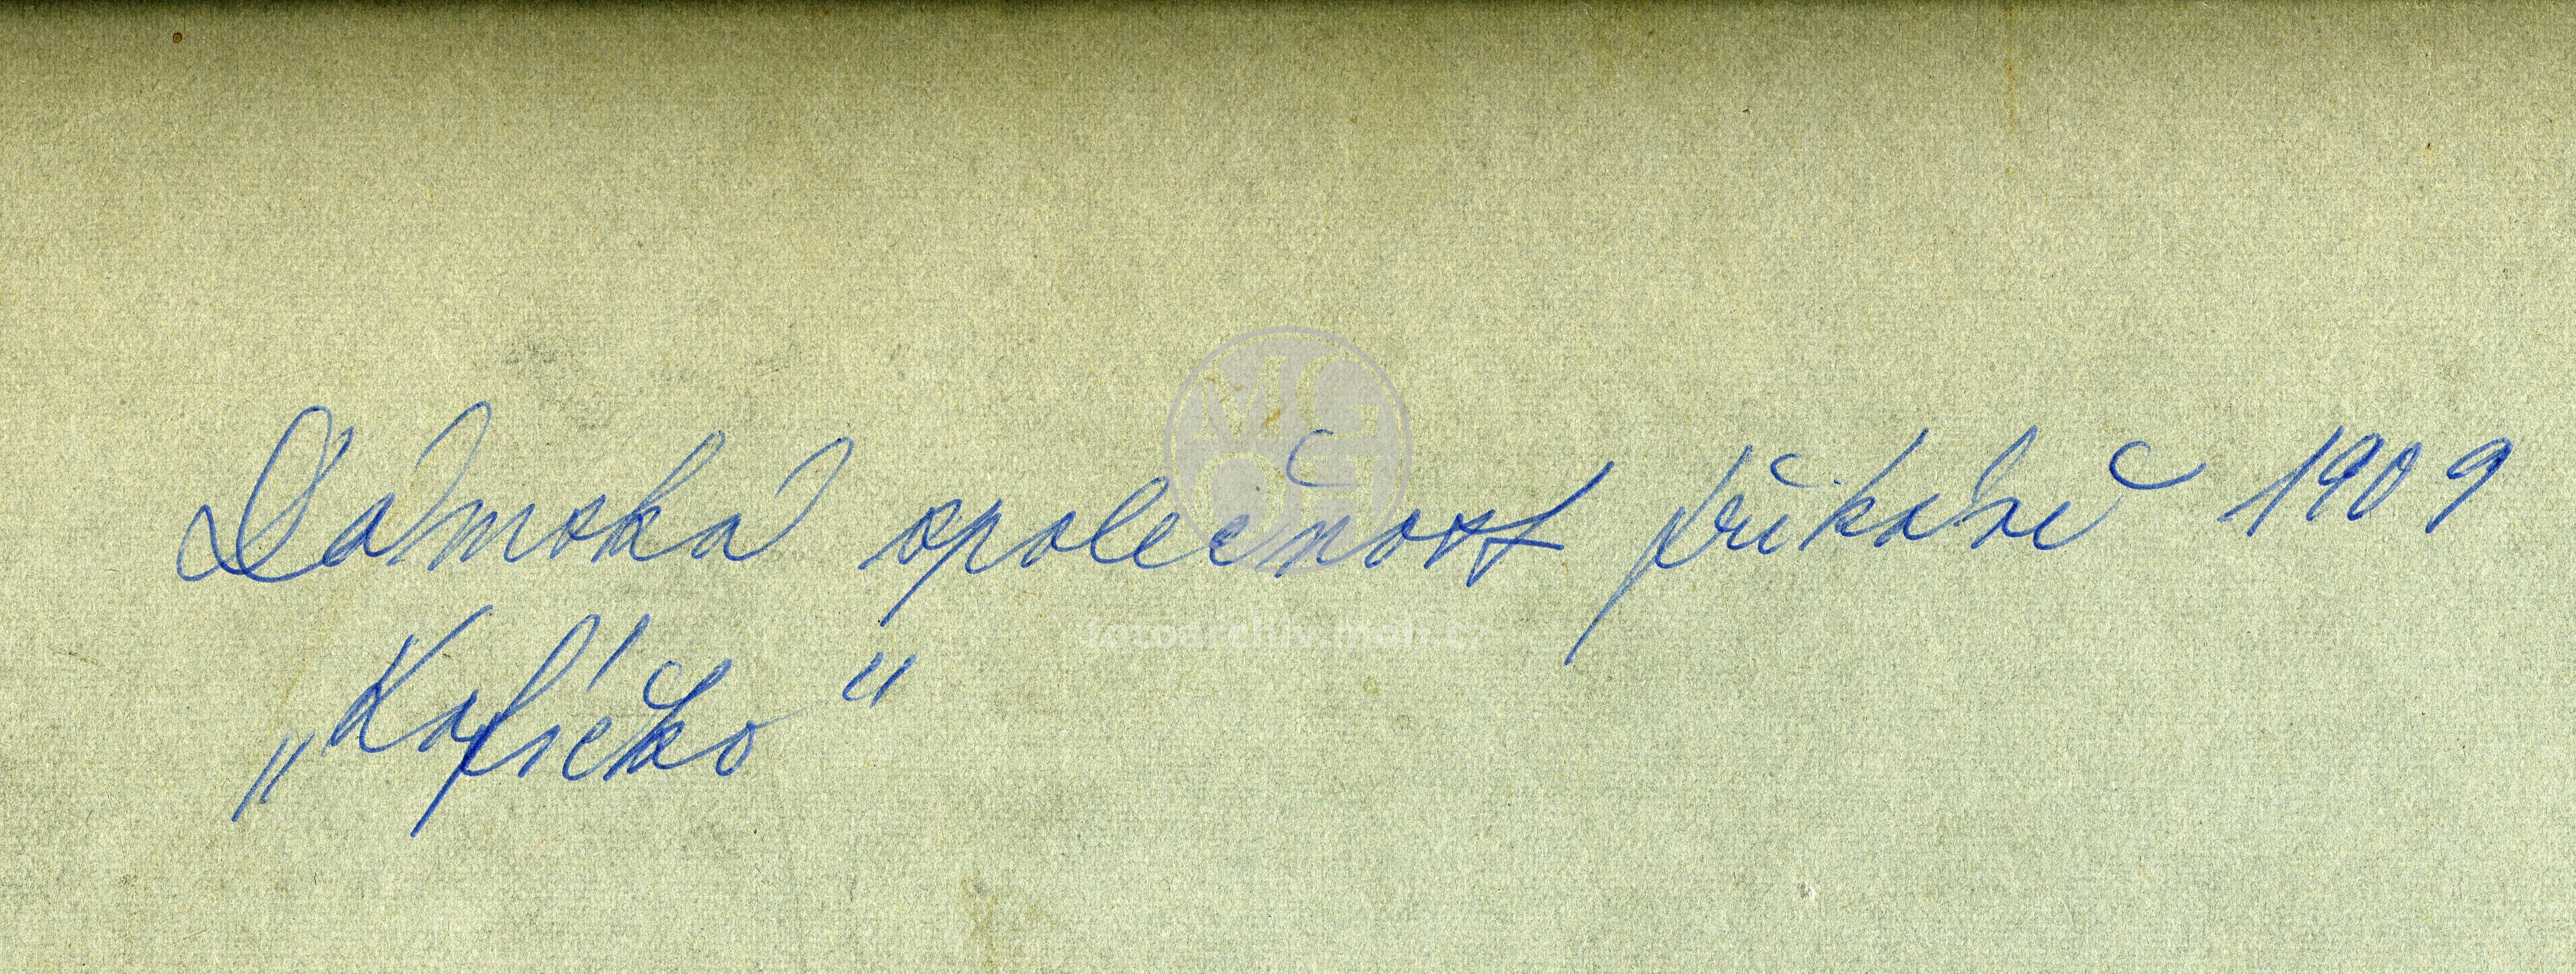 Dámská společnost při kávě 1909
„Kafíčko"
MG
OH
fotoarchiv.mgh.cz